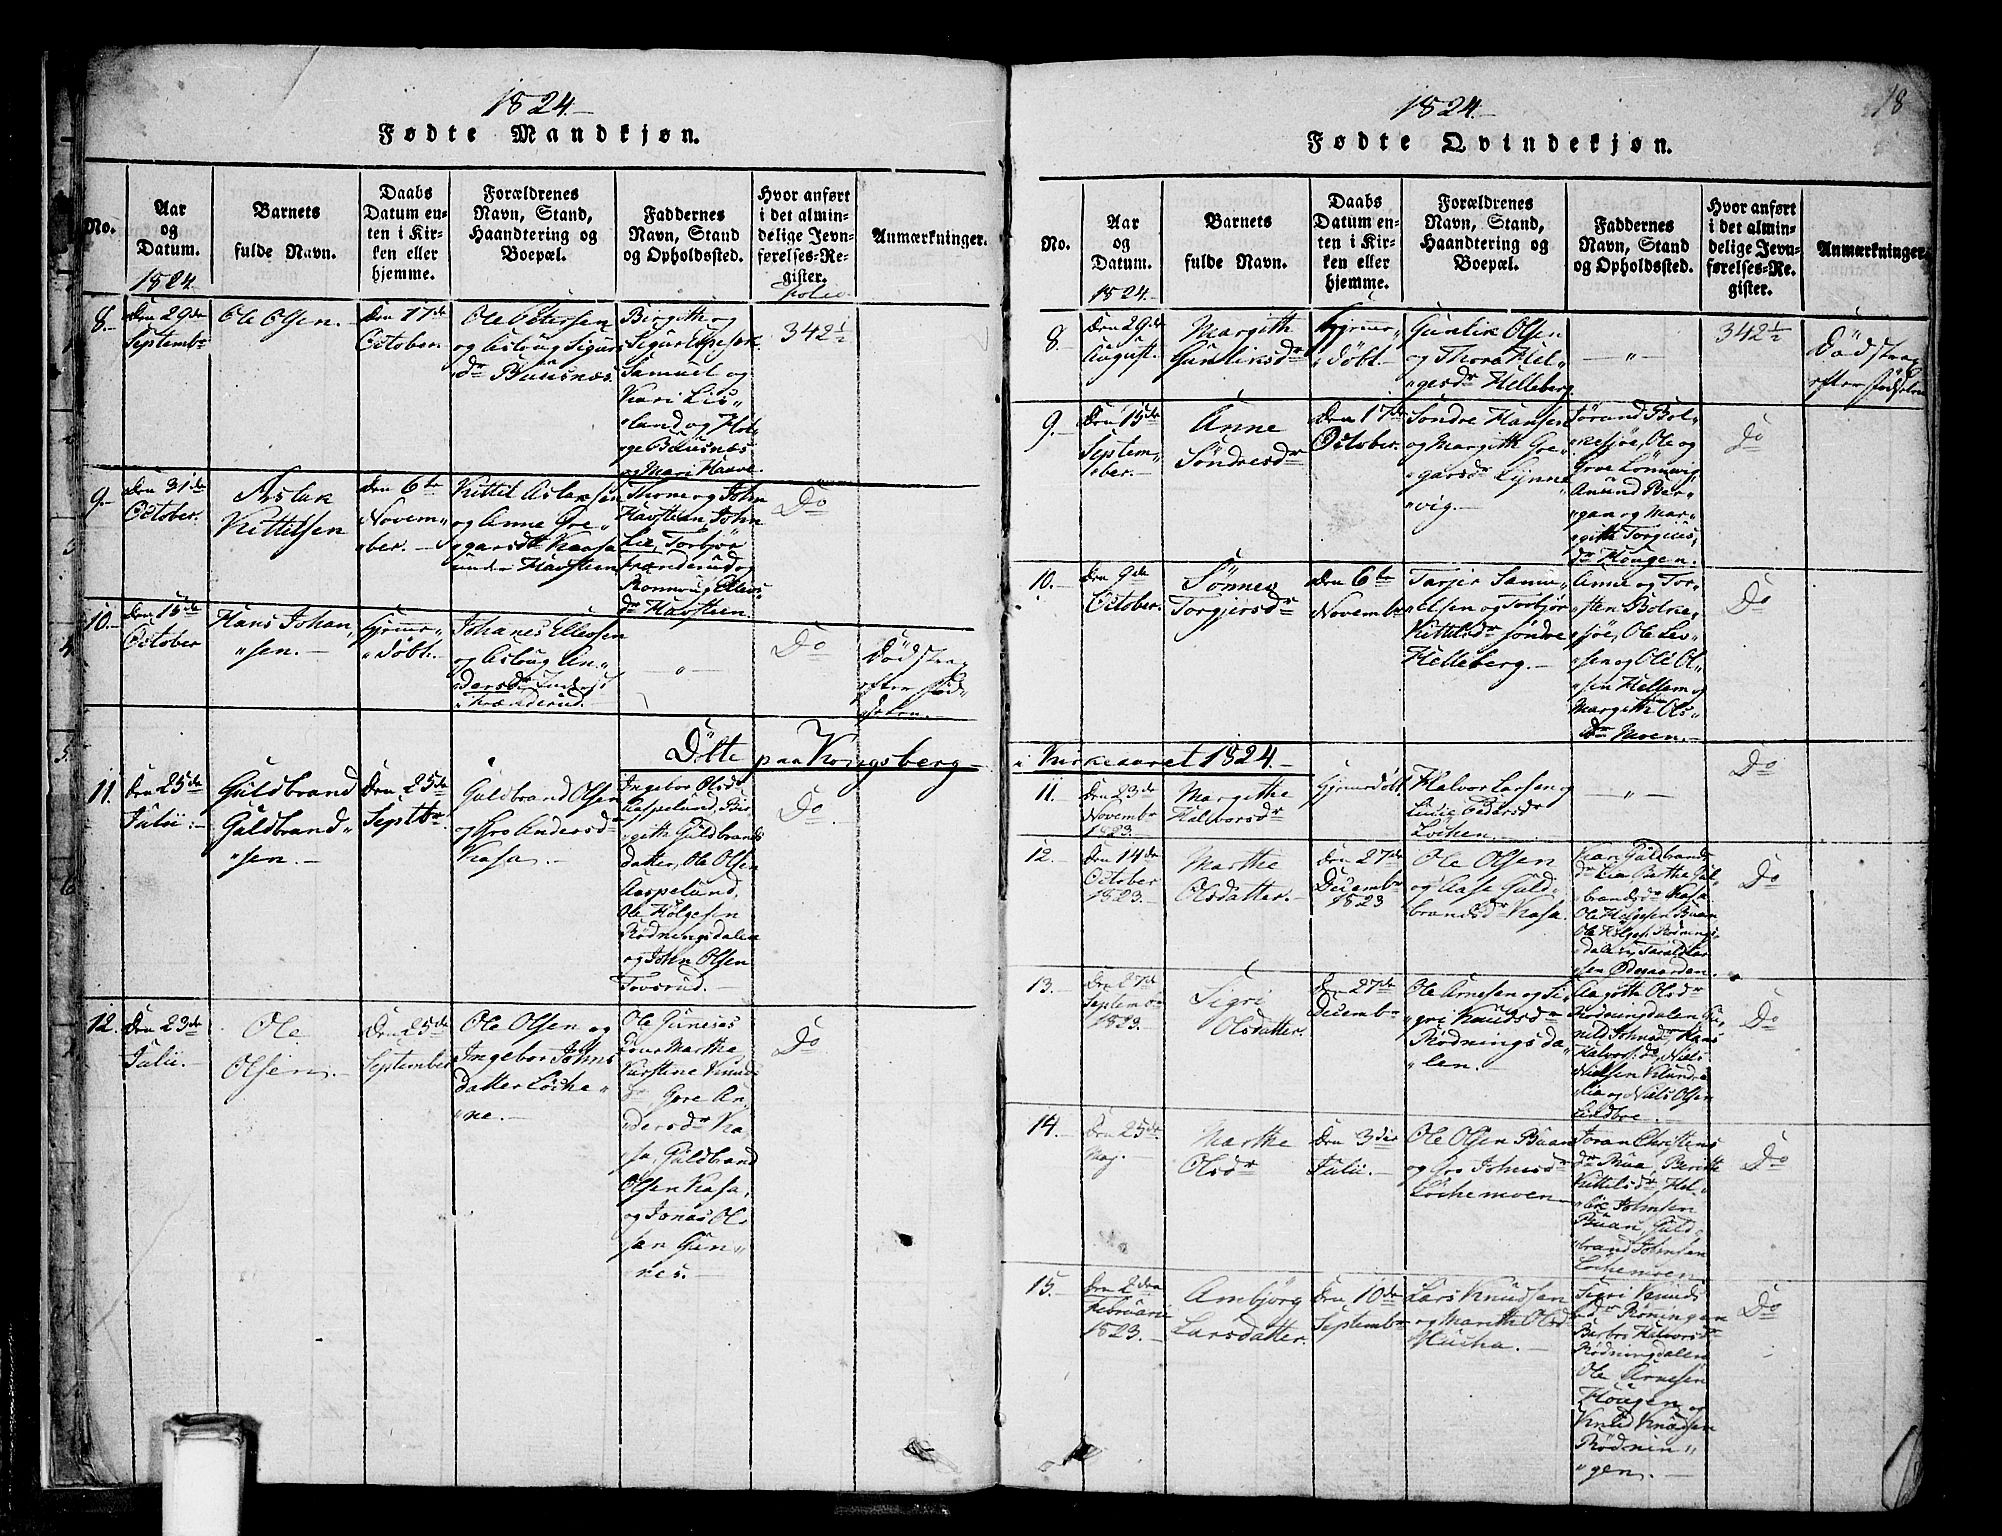 1824.
Fødte Mandkjøn.
No.
Aar
og
Datum.
1824.
Barnets
fulde Navn.
Daabs
Datum en-
ten i Kir-
ken eller
hjemme.
Forældrenes
Navn, Stand,
Haandtering og
Boepæl.
Faddernes
Navn, Stand
og Opholdssted.
Hvor anført
i det almin-
delige Jevn-
førelses-Re-
gister.
Folio.
Anmærkninger.
8.
Den 29de
Septembr
Ole Olsen.
Den 17de
October.
Ole Petersen
og Aslaug Sigurs
dr Buusnæs.
Birgith og
Samuel og
Kari Lis„
„land og Hol„
„ge Buusnæs
og Mari Haave.
342 1/2
9.
Den 31de
October.
Aslak
Kittilsen
Den 6te
Novem„
„ber.
Kittil Aslaksen
og Anne Gre„
„garsdr Kaasa
under Havsteen
Thone og John
Havsteen, John
Lie, Torbjør
Trænderud og
Ronnaug Ellevs„
dr Havsteen.
Do
10.
Den 15de
October
Hans Johan„
„sen.
Hjemme„
„døbt.
Johanes Ellevsen
og Aslaug An„
„dersdr
Trænderud.
„
Do
Død strax
efter Fød„
„selen.
Døbte paa Kongsberg
11.
Den 25de
Julii.
Guldbrand
Guldbrand„
„sen.
Den 25de
Septbr
Guldbrand Olsen
og Gro Andersdr
Kasa.
Ingebor Olsd
Aaspelund, Bir„
„gith Guldbrands
datter, Ole Olsen
Aaspelund,
Ole Holgesen
Rødningsdalen
og John Olsen
Tovsrud.
Do
12.
Den 23de
Julii.
Ole
Olsen.
Den 25de
September
Ole Olsen og
Ingebor Johns
datter Løche„
„ne.
Ole Gunnes
Marthe
Kirstine Knuds
dr, Gore An„
„dersdr Ka„
„sa, Guldbrand
Olsen Kasa,
og Jonas Ol„
„sen Gun„
„nes.
Do
1824.
18
Fødte Qvindekjøn.
No.
Aar
og
Datum.
1824.
Barnets
fulde Navn.
Daabs
Datum en-
ten i Kir-
ken eller
hjemme.
Forældrenes
Navn, Stand,
Haandtering og
Boepæl.
Faddernes
Navn, Stand
og Opholdssted.
Hvor anført
i det almin-
delige Jevn-
førelses-Re-
gister.
Anmærkninger
8.
Den 29de
August.
Margith
Gunliksdr
Hjemme„
„døbt.
Gunlik Olsen
og Thora Hel„
„gesdr Helleberg
„
342 1/2
Død strax
efter Fødselen
9.
Den 15de
Septem„
„ber.
Anne
Søndresdr
Den 17de
October.
Søndre Hansen
og Margith Gre„
„garsdr Lynne„
„vig.
Jørand Bol„
„kesjøe, Ole og
Groe Lønnevig
Anund Ber„
„gan og Mar„
„gith Torgius„
dr Hougen.
Do
10.
Den 9de
October.
Sønnev
Torgjersdr
Den 6te
Novembr
Tarjer Samu„
„elsen og Torbjør
Kittilsdr Søndre
Helleberg.
Anne og Tor„
„sten Bolke„
„sjøe, Ole Lev„
„sen og Ole Ol„
„sen Hellem og
Margithe Ols„
dr Moen.
Do
i Kirkeaaret 1824.
Do
11.
Den 23de
Novembr
1823.
Margithe
Halvorsdr
Hjemmedøbt
Halvor Larsen og
Pedersdr
Løchen.
„
12.
Den 14de
October
1823.
Marthe
Olsdatter.
Den 27de
Decembr
1823
Ole Olsen
og Aase Guld„
brandsdr Kasa.
Kari Guldbrands
dr Lia Berthe Gul„
brandsdr Kasa
Ole Holgesen Buan
Ole Holges. Rødnings„
dalen, Taraldlar
sen Ødegaarden.
Do
13.
Den 27de
Septembr
1823.
Sigri
Olsdatter.
Den 27de
Decembr
Ole Arnesen og Si„
„gri Knudsdr
Rødningsda„
„len.
Aagothe Olsdr
Rødningdalen Gu„
nild Johnsdr, Hans
Halvors. do, Niels
Nielsen Klundre
lia og Niels Olsen
Lildboe.
Do
14.
Den 25de
Maj.
Marthe
Olsdr
Den 3die
Julii.
Ole Olsen Buan
og Gro Johnsdr
Løchemoen
Joran Christens
dr Rua, Berithe
Kittelsdr, Hel„
„lik Johnsen
Buan, Guld„
brand Johnsen
Løchemoen
Do
15.
Den 2den
Februarii
1823.
Ambjørg
Larsdatter.
Den 10de
Septembr
Lars Knudsen
og Marith Olsd
Hucha.
Sigri Knuds
dr Røningen
Barbro Halvorsdr
Rødningdalen
Ole Arnesen
Hougen og
Knud Knudsen
Rødnin„
„gen.
Do